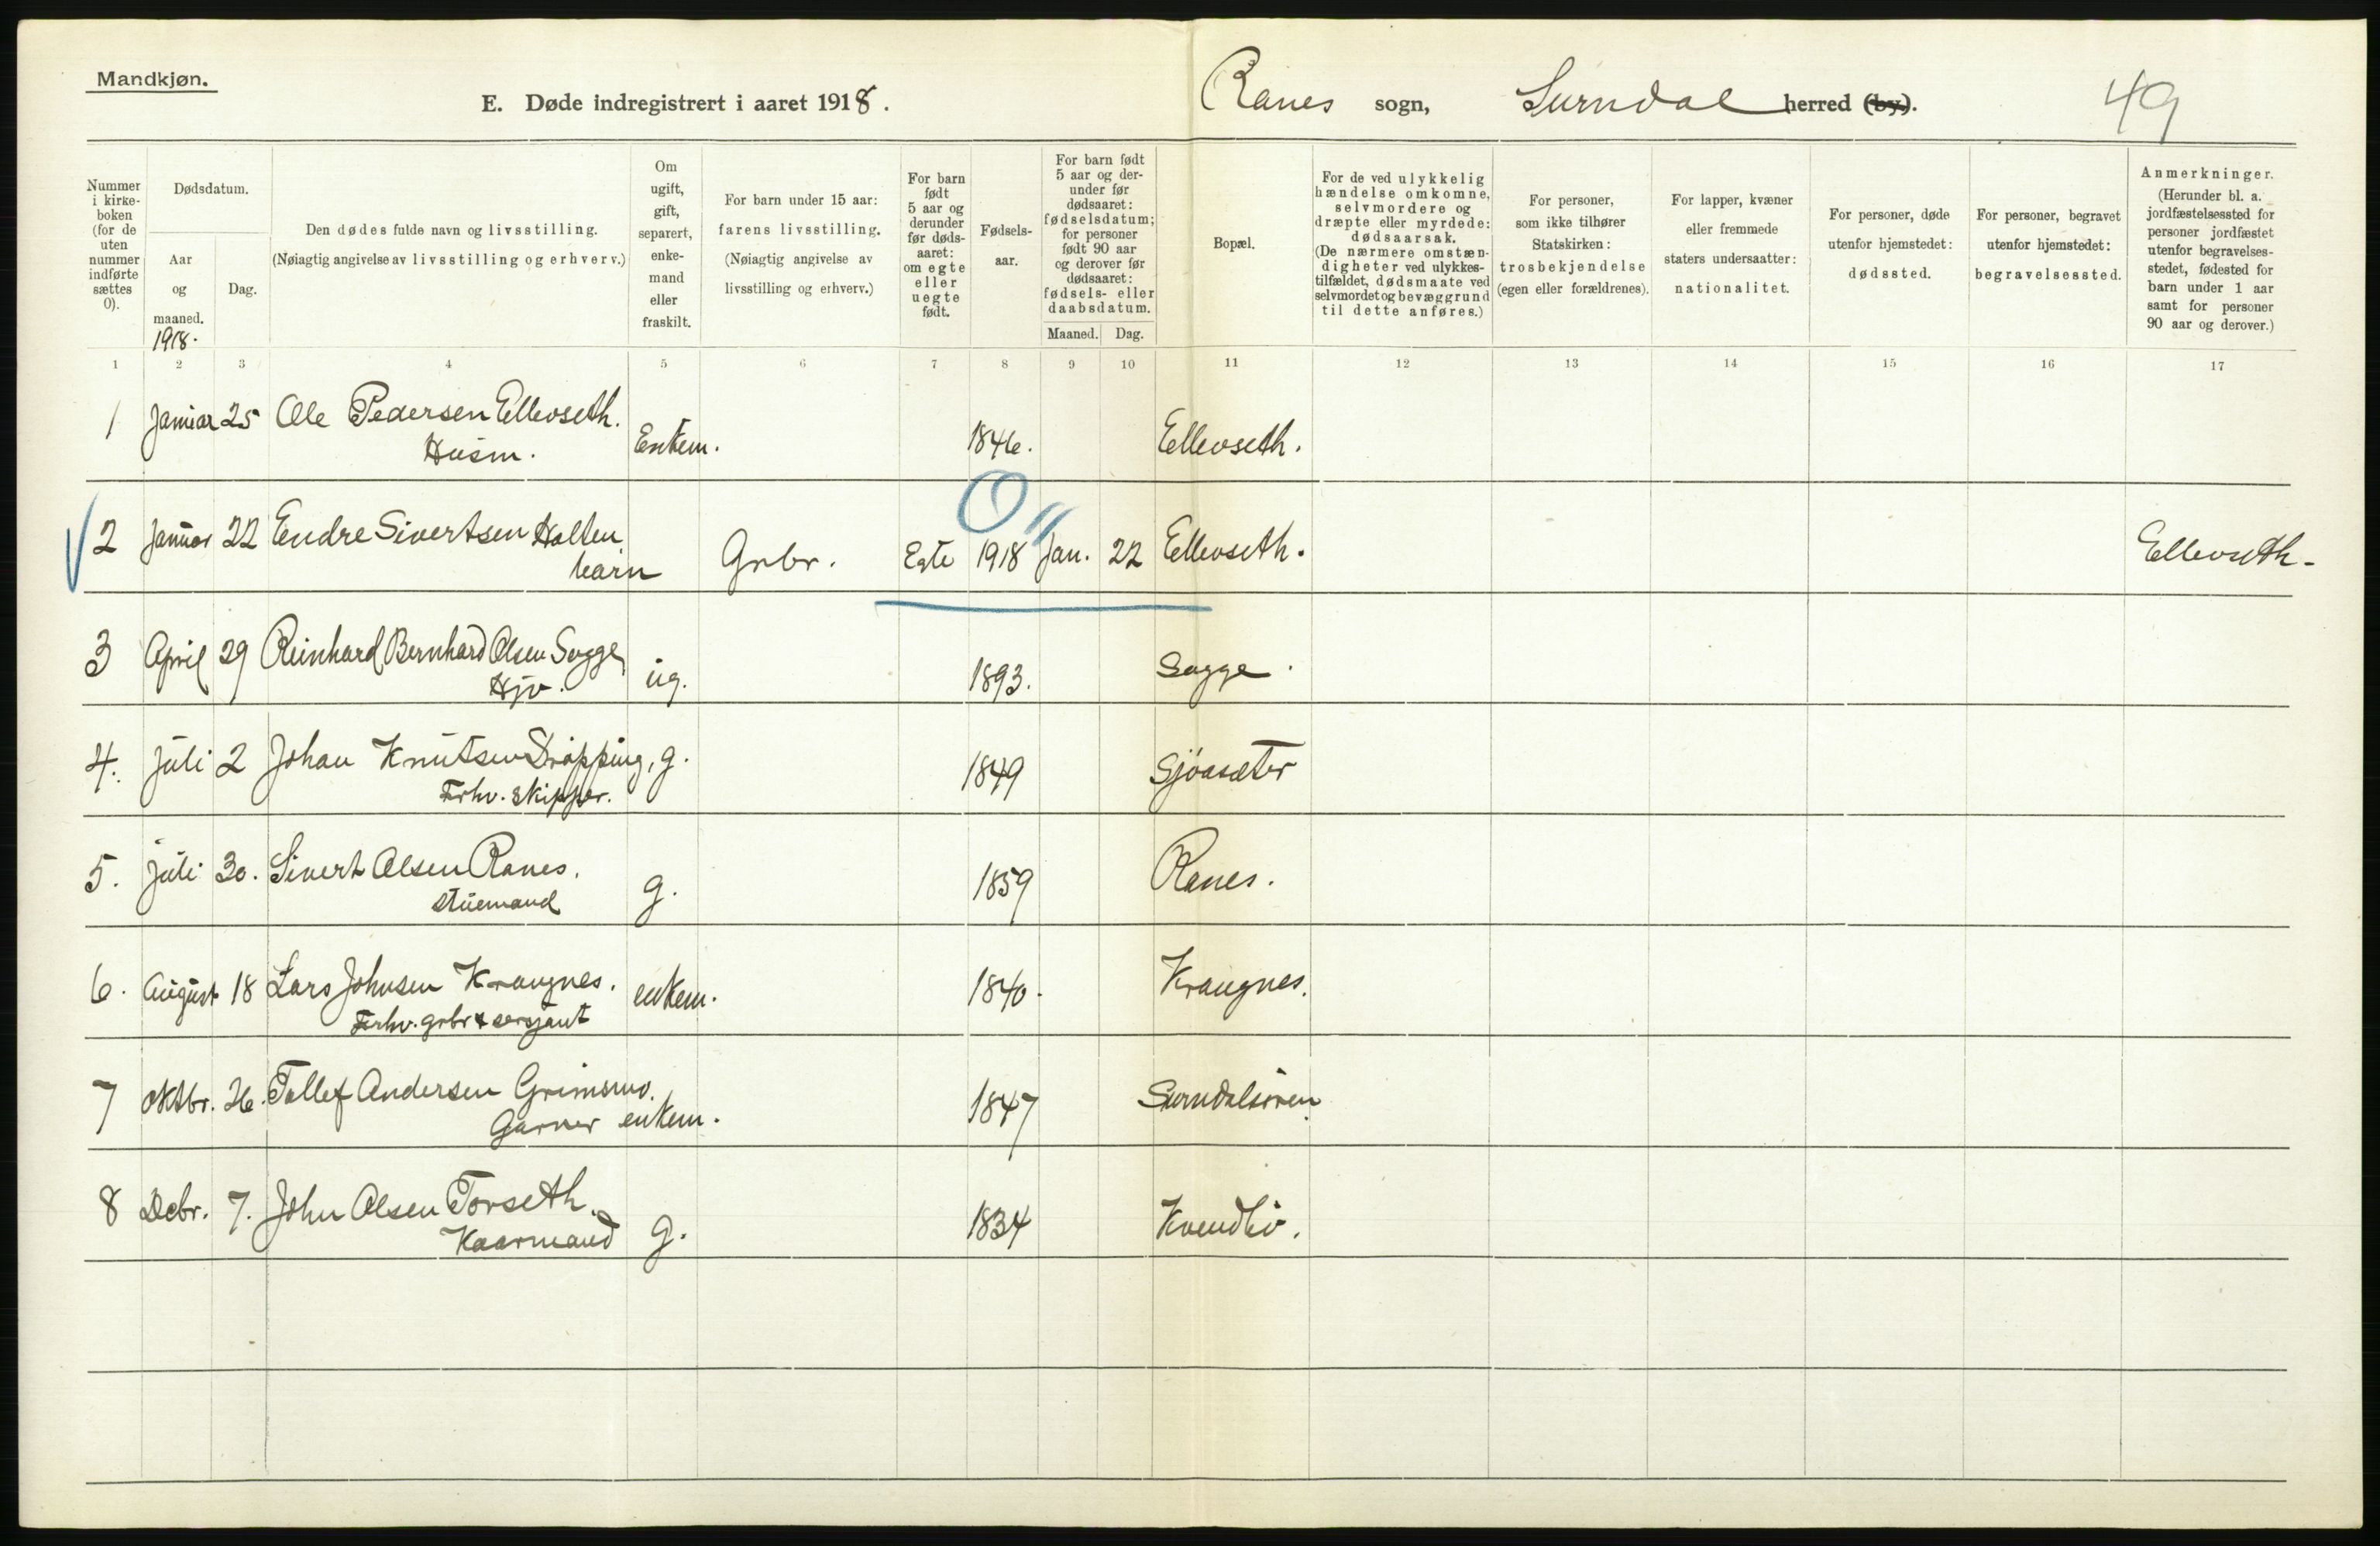 Mandkjøn.
E. Døde indregistrert i aaret 1918.
Ranes sogn, Surndal herred (by).
49
Nummer i kirke-boken (for de uten nummer indførte sættes 0).
Dødsdatum.
Aar og maaned.
1918.
Dag.
Den dødes fulde navn og livsstilling.
(Nøiagtig angivelse av livsstilling og erhverv.)
Om ugift, gift, separert, enke-mand eller fraskilt.
For barn under 15 aar:
farens livsstilling.
(Nøiagtig angivelse av livsstilling og erhverv.)
For barn født 5 aar og derunder før døds-aaret: om egte eller uegte født.
Fødsels-aar.
For barn født 5 aar og der-under før dødsaaret: fødselsdatum; for personer født 90 aar og derover før dødsaaret: fødsels- eller daabsdatum.
Maaned. Dag.
Bopæl.
For de ved ulykkelig hændelse omkomne, selvmordere og dræpte eller myrdede: dødsaarsak.
(De nærmere omstæn-digheter ved ulykkes-tilfældet, dødsmaate ved selvmordet og bevæggrund til dette anføres.)
For personer, som ikke tilhører Statskirken: trosbekjendelse (egen eller forældrenes).
For lapper, kvæner eller fremmede staters undersaatter: nationalitet.
For personer, døde utenfor hjemstedet: dødssted.
For personer, begravet utenfor hjemstedet: begravelsessted.
Anmerkninger.
(Herunder bl. a. jordfæstelsessted for personer jordfæstet utenfor begravelses-stedet, fødested for barn under 1 aar samt for personer 90 aar og derover.)
1 2 3 4 5 6 7 8 9 10 11 12 13 14 15 16 17
1 Januar 25 Ole Pedersen Ellevseth.
Husm. Enkem. 1846. Ellevseth.
2 Januar 22 Endre Sivertsen Holten
barn Grbr. Egte 1918 Jan. 22 Ellevseth. Ellevseth.
3 April 29 Reinhard Bernhard Olsen Sogge
Hjv. ug. 1893. Sogge.
4. Juli 2 Johan Knutsen Drøpping, g.
Frhv. skipper. 1849 Sjöasæter
5. Juli 30. Sivert Olsen Ranes.
Stuemand g. 1859 Ranes.
6. August 18 Lars Johnsen Krangnes.
Frhv. grbr & sersjant enkem. 1840. Krangnes.
7 Oktbr. 26. Tollef Andersen Grimsmo.
Garver enkem. 1847 Surndalsøren
8 Decbr. 7. John Olsen Torseth.
Kaarmand g. 1834 Kvendbø.